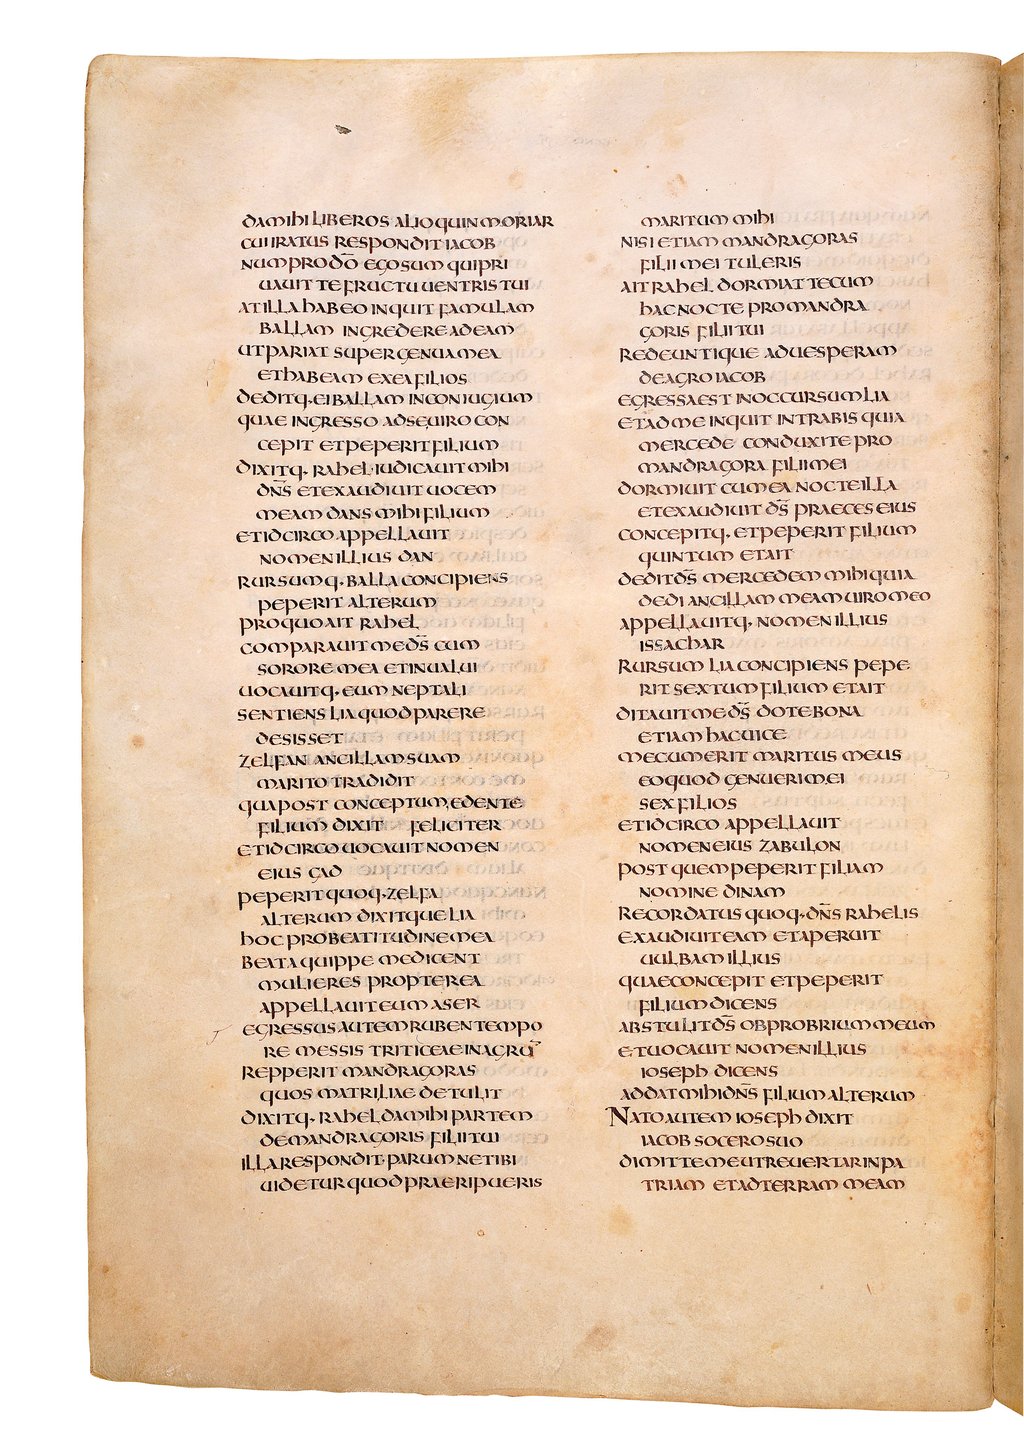 damihi liberos alioquin moriar
cui iratus respondit iacob
num pro dō ego sum qui pri
uauit te fructu uentris tui
at illa habeo inquit famulam
ballam ingredere ad eam
ut pariat super genua mea
et habeam ex ea filios
deditq· ei ballam in coniugium
quae ingresso ad se uiro con
cepit et peperit filium
dixitq· rahel iudicauit mihi
dn̄s et exaudiuit uocem
meam dans mihi filium
et idcirco appellauit
nomen illius dan
rursumq· balla concipiens
peperit alterum
pro quo ait rahel
comparauit me ds̄ cum
sorore mea et inualui
uocauitq· eum neptali
sentiens lia quod parere
desisset
zelfan ancillam suam
marito tradidit
qua post conceptum edente
filium dixit feliciter
et idcirco uocauit nomen
eius gad
peperit quoq· zelfa
alterum dixitque lia
hoc pro beatitudine mea
beata quippe me dicent
mulieres propterea
appellauit eum aser
egressus autem ruben tempo
re messis triticeae in agrū
repperit mandragoras
quos matri liae detulit
dixitq· rahel da mihi partem
de mandragoris filii tui
illa respondit parum ne tibi
uidetur quod praeripueris
maritum mihi
nisi etiam mandragoras
filii mei tuleris
ait rahel dormiat tecum
hac nocte pro mandra
goris filii tui
redeuntique ad uesperam
de agro iacob
egressa est in occursum lia
et ad me inquit intrabis quia
mercede conduxi te pro
mandragora filii mei
dormiuit cum ea nocte illa
et exaudiuit ds̄ praeces eius
concepitq· et peperit filium
quintum et ait
dedit ds̄ mercedem mihi quia
dedi ancillam meam uiro meo
appellauitq· nomen illius
issachar
rursum lia concipiens pepe
rit sextum filium et ait
ditauit me ds̄ dote bona
etiam hac uice
mecum erit maritus meus
eo quod genuerim ei
sex filios
et idcirco appellauit
nomen eius zabulon
post quem peperit filiam
nomine dinam
recordatus quoq· dn̄s rahelis
exaudiuit eam et aperuit
uulbam illius
quae concepit et peperit
filium dicens
abstulit ds̄ obprobrium meum
et uocauit nomen illius
ioseph dicens
addat mihi dn̄s filium alterum
Nato autem ioseph dixit
iacob socero suo
dimitte me ut reuertar in pa
triam et ad terram meam